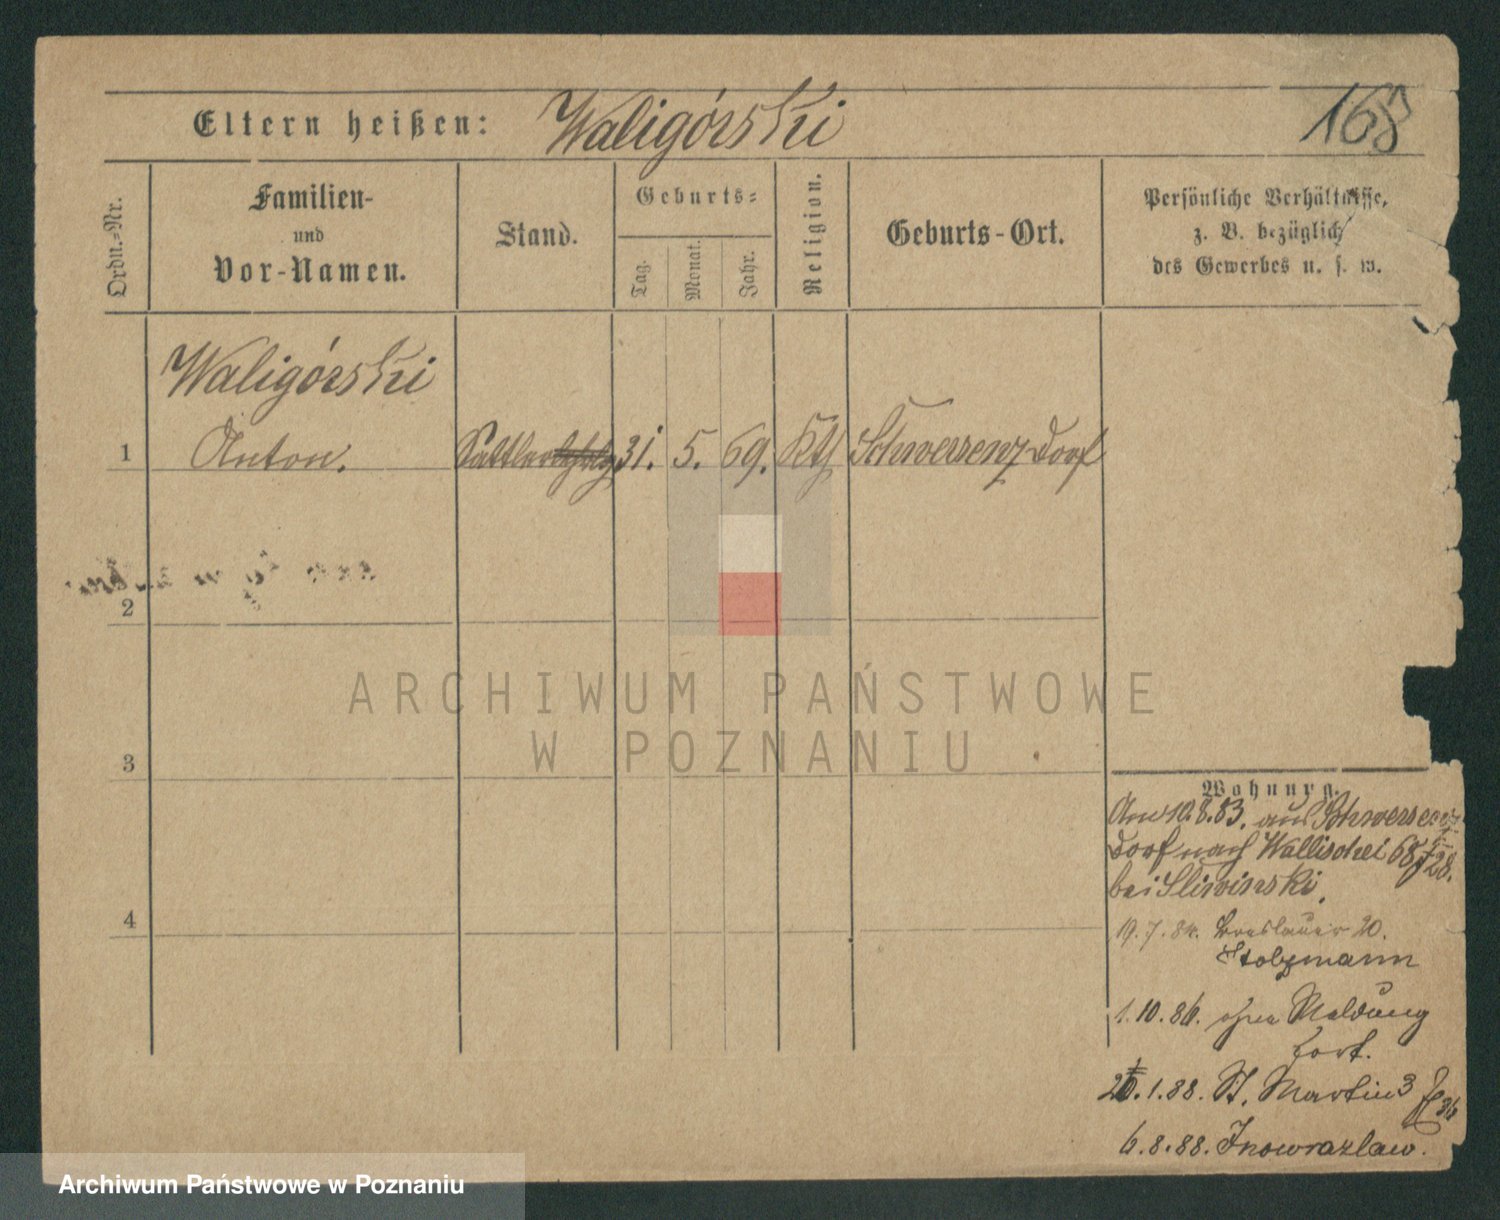 Eltern heißen: Waligórski
168
Ordn.-Nr.
Familien-
und
Vor-Namen.
Stand.
Geburts-
Tag.
Monat.
Jahr.
Religion.
Geburts-Ort.
Persönliche Verhältnisse,
z. B. bezüglich
des Gewerbes u. s. w.
Waligórski
1 Anton. Sattler 31. 5. 69. Kth Schwersenz Dorf
2
3
4
Wohnung.
Am 10.8.83. aus Schwersenz
Dorf nach Wallischei 68
bei Sliwinski.
19.7.84. Breslauer 20.
Stolzmann
1.10.86. ohne Meldung
fort.
26.1.88. St. Martin 3
6.8.88. Inowrazlaw.
ARCHIWUM PAŃSTWOWE
W POZNANIU
Archiwum Państwowe w Poznaniu